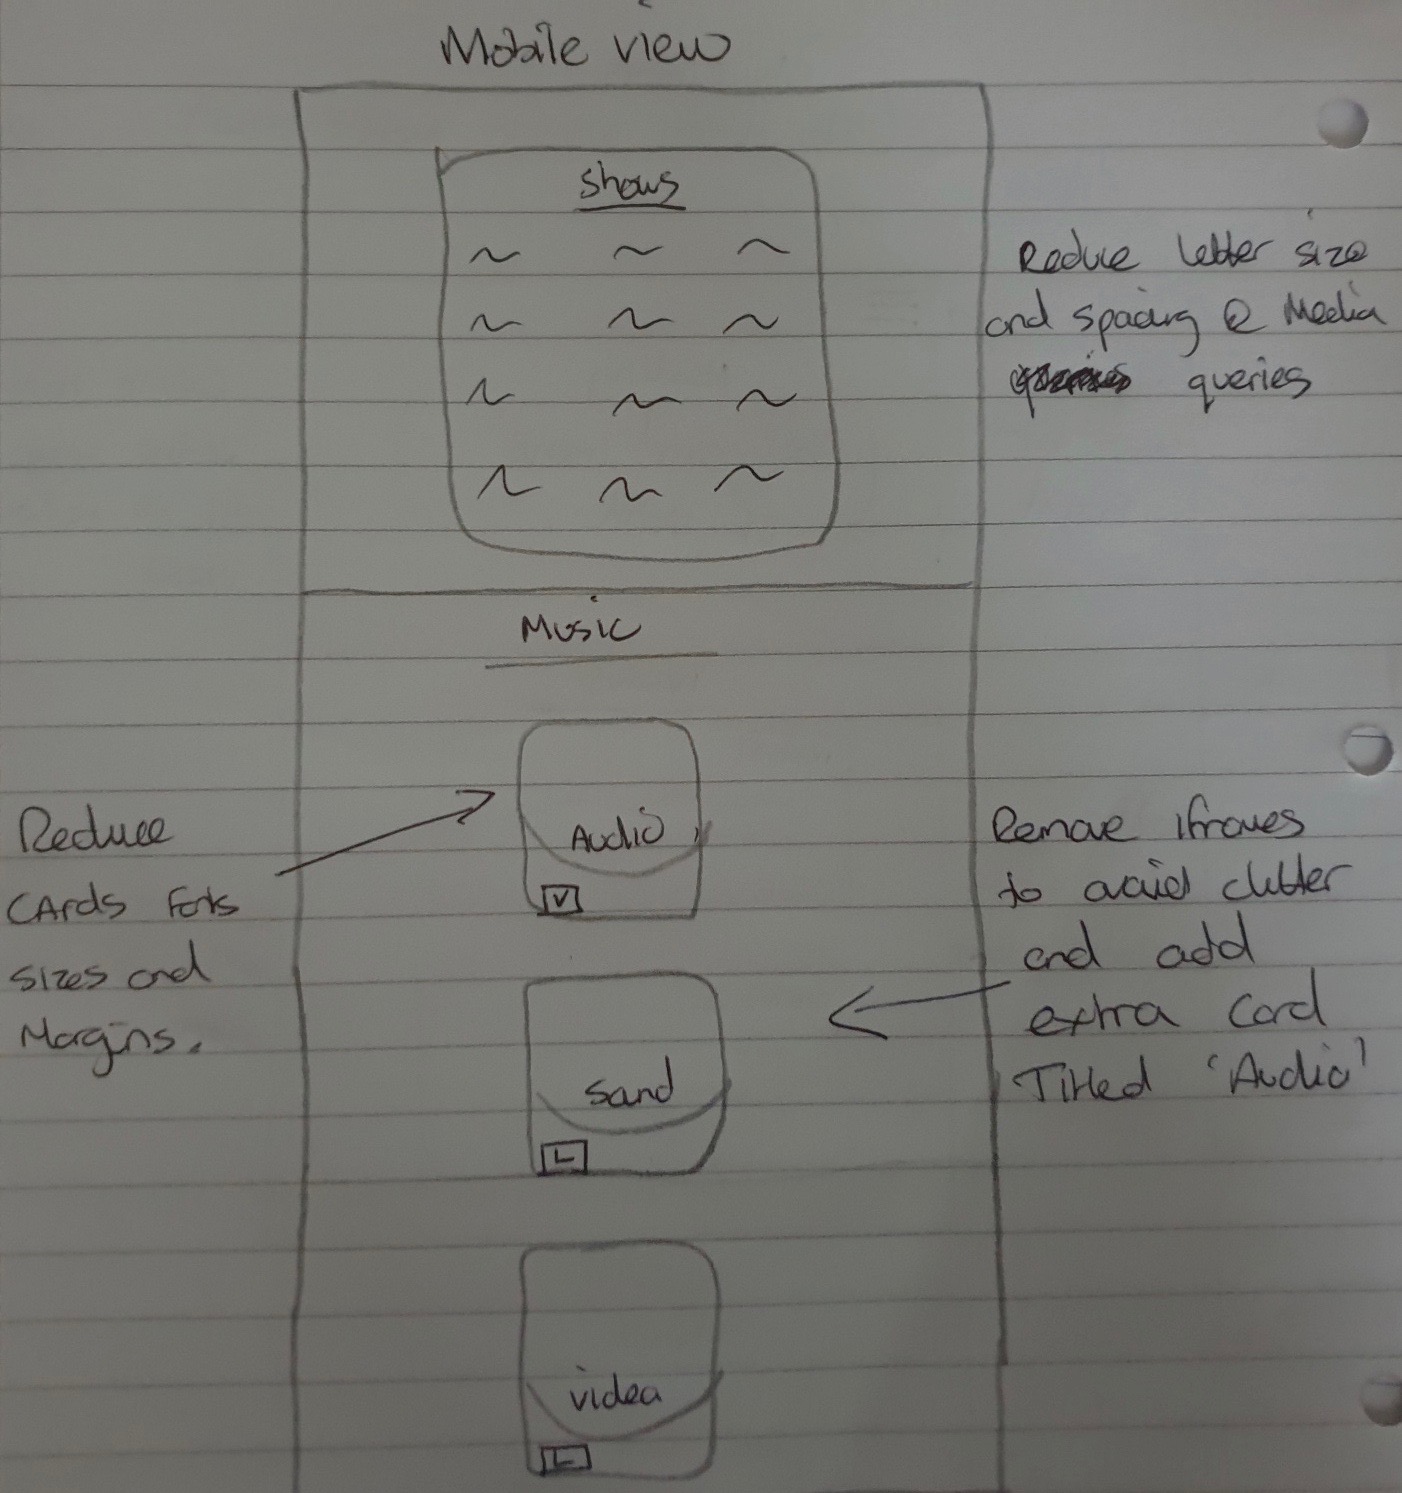 Mobile view
Shows
Reduce letter size
and spacing @ Media
queries
Music
Audio
V
Reduce
CArds Fonts
sizes and
Margins.
Remove iframes
to avoid clutter
and add
extra Card
Titled 'Audio'
Sand
L
video
L